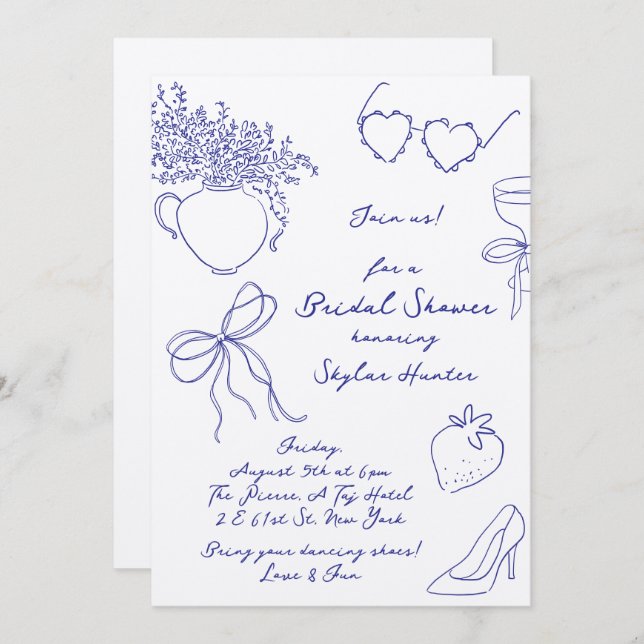 Join us!
for a
Bridal Shower
honoring
Skylar Hunter
Friday,
August 5th at 6pm
The Pierre, A Taj Hotel
2 E 61st St, New York
Bring your dancing shoes!
Love & Fun